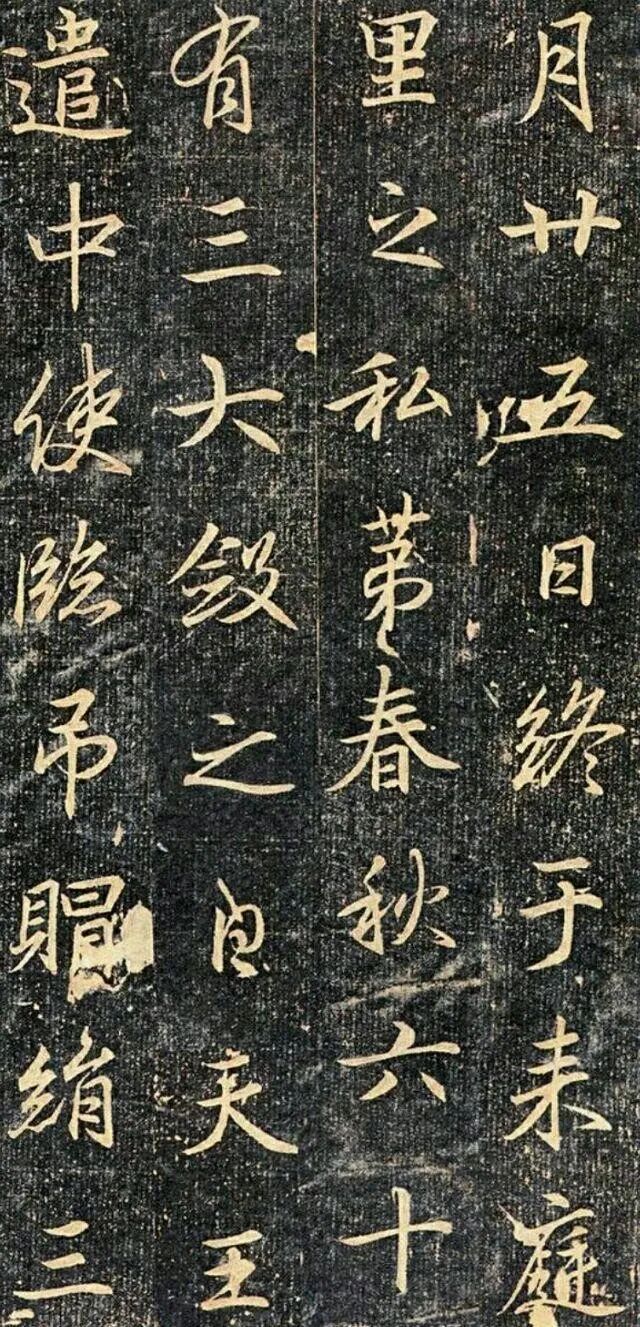 月廿五日終于来庭
里之私苐春秋六十
有三大斂之日天王
遣中使臨吊賵絹三